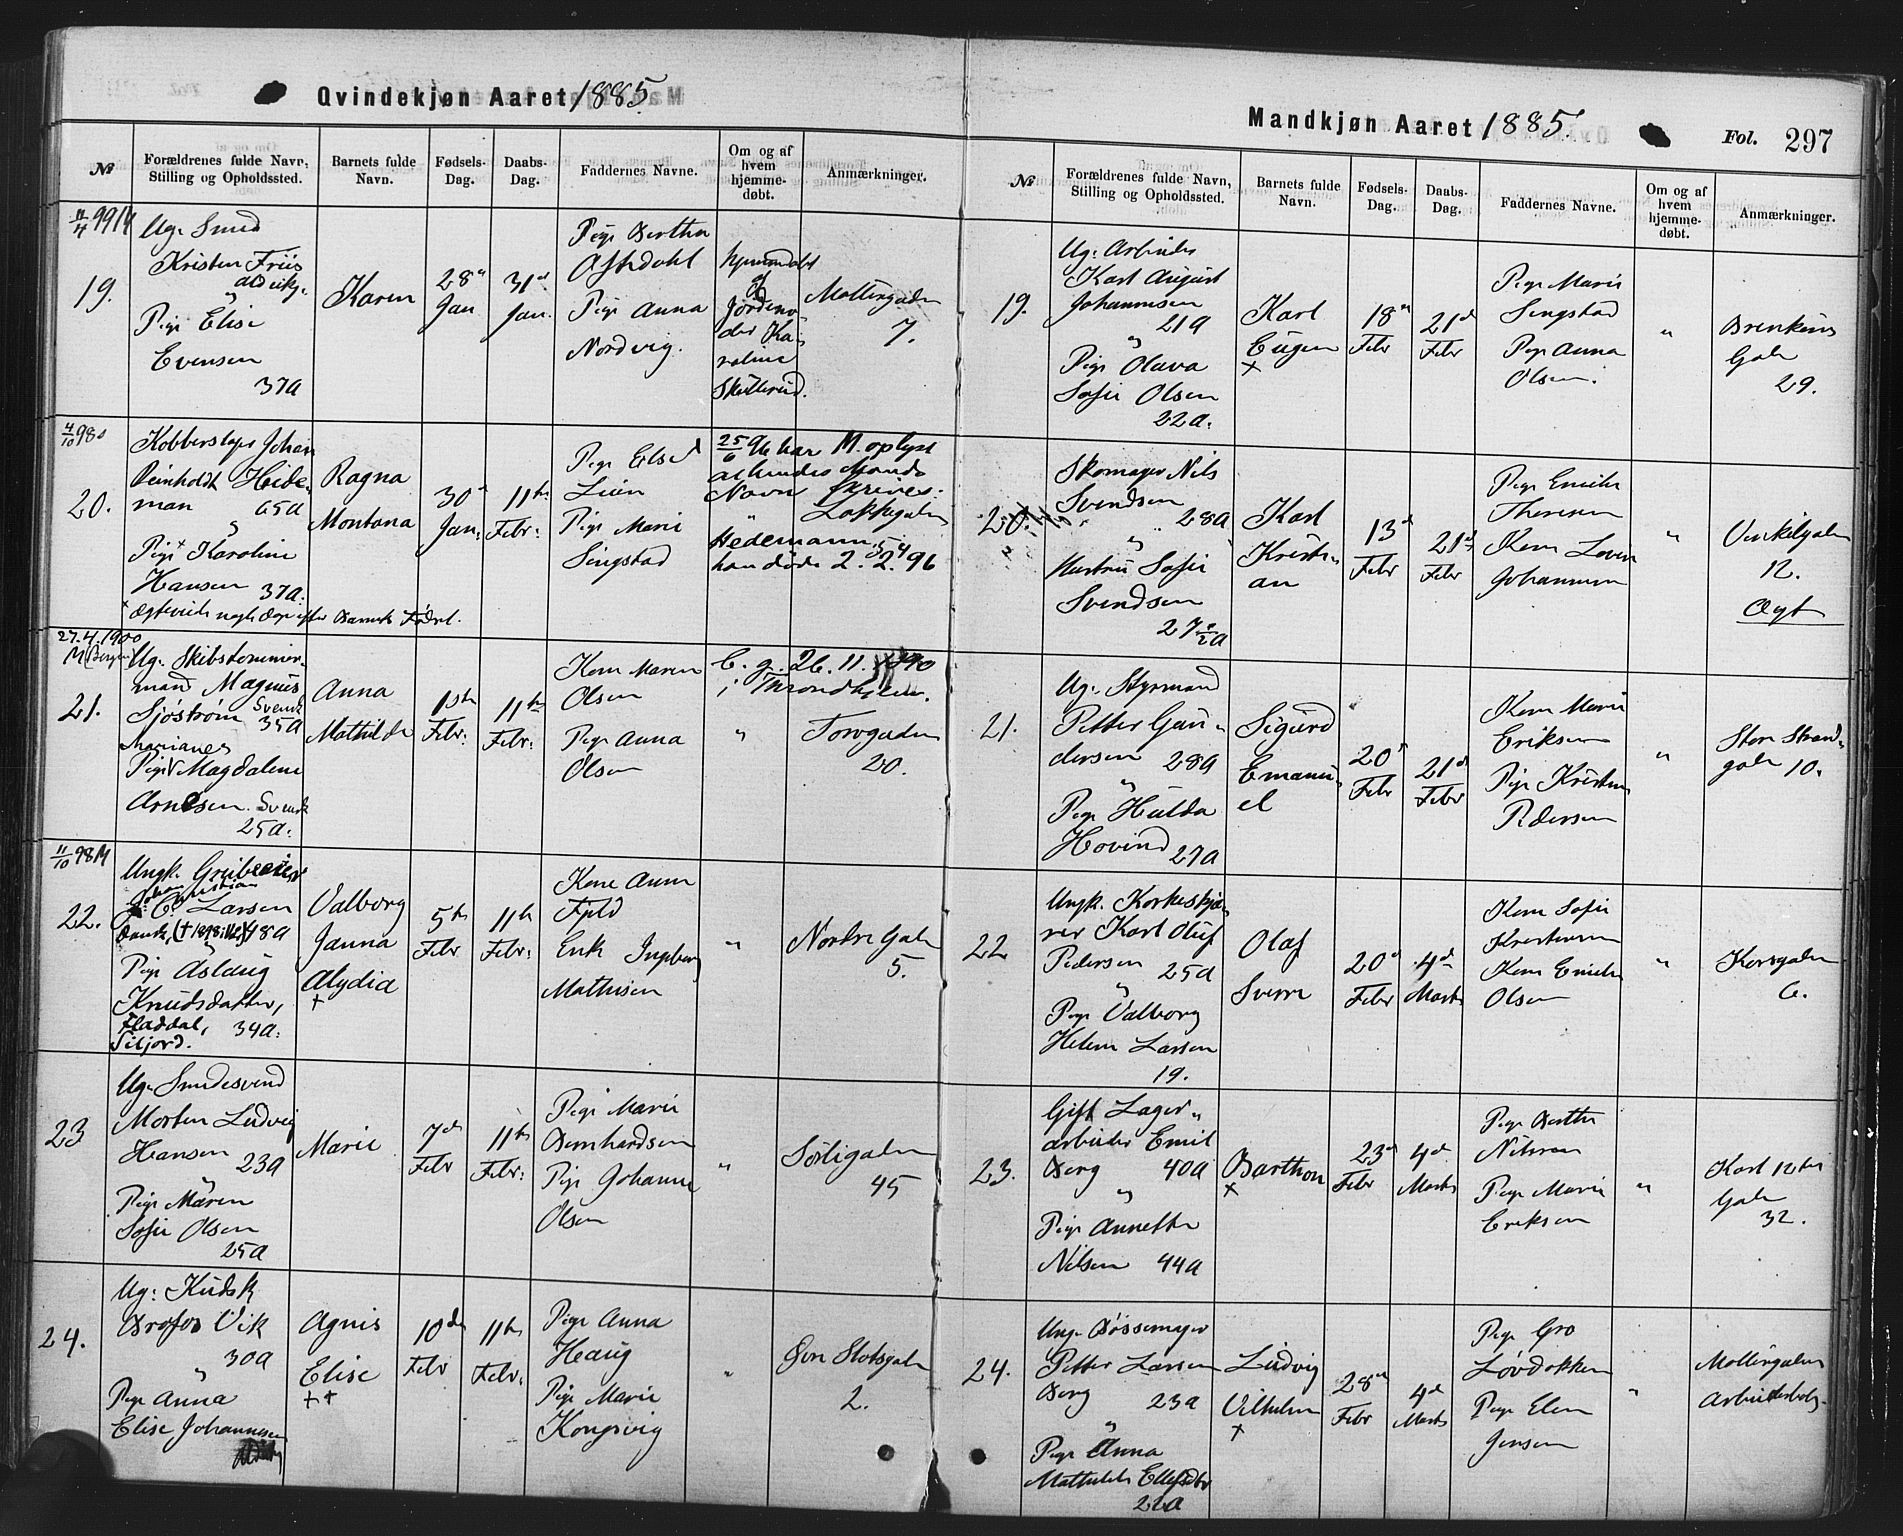 Qvindekjøn Aaret 1885
№
Forældrenes fulde Navn,
Stilling og Opholdssted.
Barnets fulde
Navn.
Fødsels-
Dag.
Daabs-
Dag.
Faddernes Navne.
Om og af
hvem
hjemme-
døbt.
Anmærkninger.
11/4 99 M
19.
Ug. Smed
Kristen Friis
"
Pige Elise
Evensen
37a
Karen
28de
Jan
31de
Jan.
Pige Berthe
Pige Anna
Nordvig.
hjemmedøbt
af
Jordemo-
der Ka-
roline
Skullerud.
Møllergaden
7.
4/10 98
20.
Kobberslager Johan
Reinholdt Heide-
man 65a
"
Pige + Karoline
Hansen 37a.
+ Ægteviede nogle Dage efter Barnets Fødsel.
Ragna
Montana
30de
Jan.
11te
Febr:
Pige Else
Lien
Pige Marie
Singstad
25/6 96 har M oplyst
at hendes Mands
Navn skrives:
Hedemann,
han døde 2. 2. 96
Løkkegaden
54
27.4.1900
M (Bergen)
21.
Ug. Skibstømmer-
mand Magnus
Sjøstrøm Svensk
35a
Marianes
Pige Magdalene
Arnesen. Svensk
25a.
Anna
Mathilde
1ste
Febr:
11te
Febr:
Kone Maren
Olsen
Pige Anna
Olsen
C. g. 26. 11. 1890
i Throndhjem.
"
Torvgaden
20.
11/10 98 M
22.
Ungk.
Johan Christian
J. C. Larsen
Dansk, 48a
"
Pige Aslaug
Knudsdatter,
Fladdal, 34a.
Siljord.
Valborg
Janna
Alydia
+
5te
Febr
11te
Febr:
Kone Anna
Fjeld
Enk Ingeborg
Mathisen
"
Nordre Gade
5.
23
Ug. Smedesvend
Morten Ludvig
Hansen 23a
"
Pige Maren
Sofie Olsen
25a
Marie
7de
Febr
11te
Febr:
Pige Marie
Bernhardsen
Pige Johanne
Olsen
"
Sorligaden
45
24.
Ug: Kudsk
Brofos Vik
" 30a
Pige Anna
Elise Johannesen
Agnes
Elise
++
10de
Febr
11te
Febr:
Pige Anna
Haug
Pige Marie
Kongsvig
"
Øvre Slotsgade
2.
Mandkjøn Aaret 1885.
Fol. 297
№
Forældrenes fulde Navn,
Stilling og Opholdssted.
Barnets fulde
Navn.
Fødsels-
Dag.
Daabs-
Dag.
Faddernes Navne.
Om og af
hvem
hjemme-
døbt.
Anmærkninger.
19.
Ug: Arbeider
Karl August
Johannesen
21a
"
Pige Olava
Sofie Olsen
22a.
Karl
Eugen
+
18de
Febr
21de
Febr
Pige Marie
Singstad
Pige Anna
Olsen.
"
Brenneris
Gade
29.
20.
Skomager Nils
Svendsen
28a
"
Hustru Sofie
Svendsen
27 1/2a
Karl
Kristi-
an
13de
Febr
21de
Febr
Pige Emilie
Theresen
Kone Lovise
Johannesen
"
Vinkelgaden
12.
Ægt
21.
Ug. Styrmand
Petter Gun-
dersen 28a
"
Pige Hulda
Hovind 27a
Sigurd
Emanu-
el
20de
Febr
21de
Febr
Kone Marie
Eriksen
Pige Kristine
Pedersen
"
Store Strand-
gade 10.
22
Ungk. Korkeskjæ-
rer Karl Oluf
Pedersen 25a
"
Pige Valborg
Helene Larsen
19.
Olaf
Sverre
20de
Febr
4de
Marts
Kone Sofie
Kristensen
Kone Emilie
Olsen
"
Korsgaden
6.
23.
Gift Lager-
arbeider Emil
Berg 40a
"
Pige Annette
Nilsen 44a
Barthon
+
23de
Febr
4de
Marts
Pige Berthe
Nilsen
Pige Marie
Eriksen
"
Karl 12tes
Gade
32.
24.
Ungk. Bøssemager
Petter Larsen
Berg 23a
"
Pige Anna
Mathilde Ellefsdtr
22a
Ludvig
Vilhelm
+
28de
Febr
4de
Marts
Pige Gro
Løvdokken
Pige Elen
Jensen
"
Møllergaden
Arbeiderbolig.